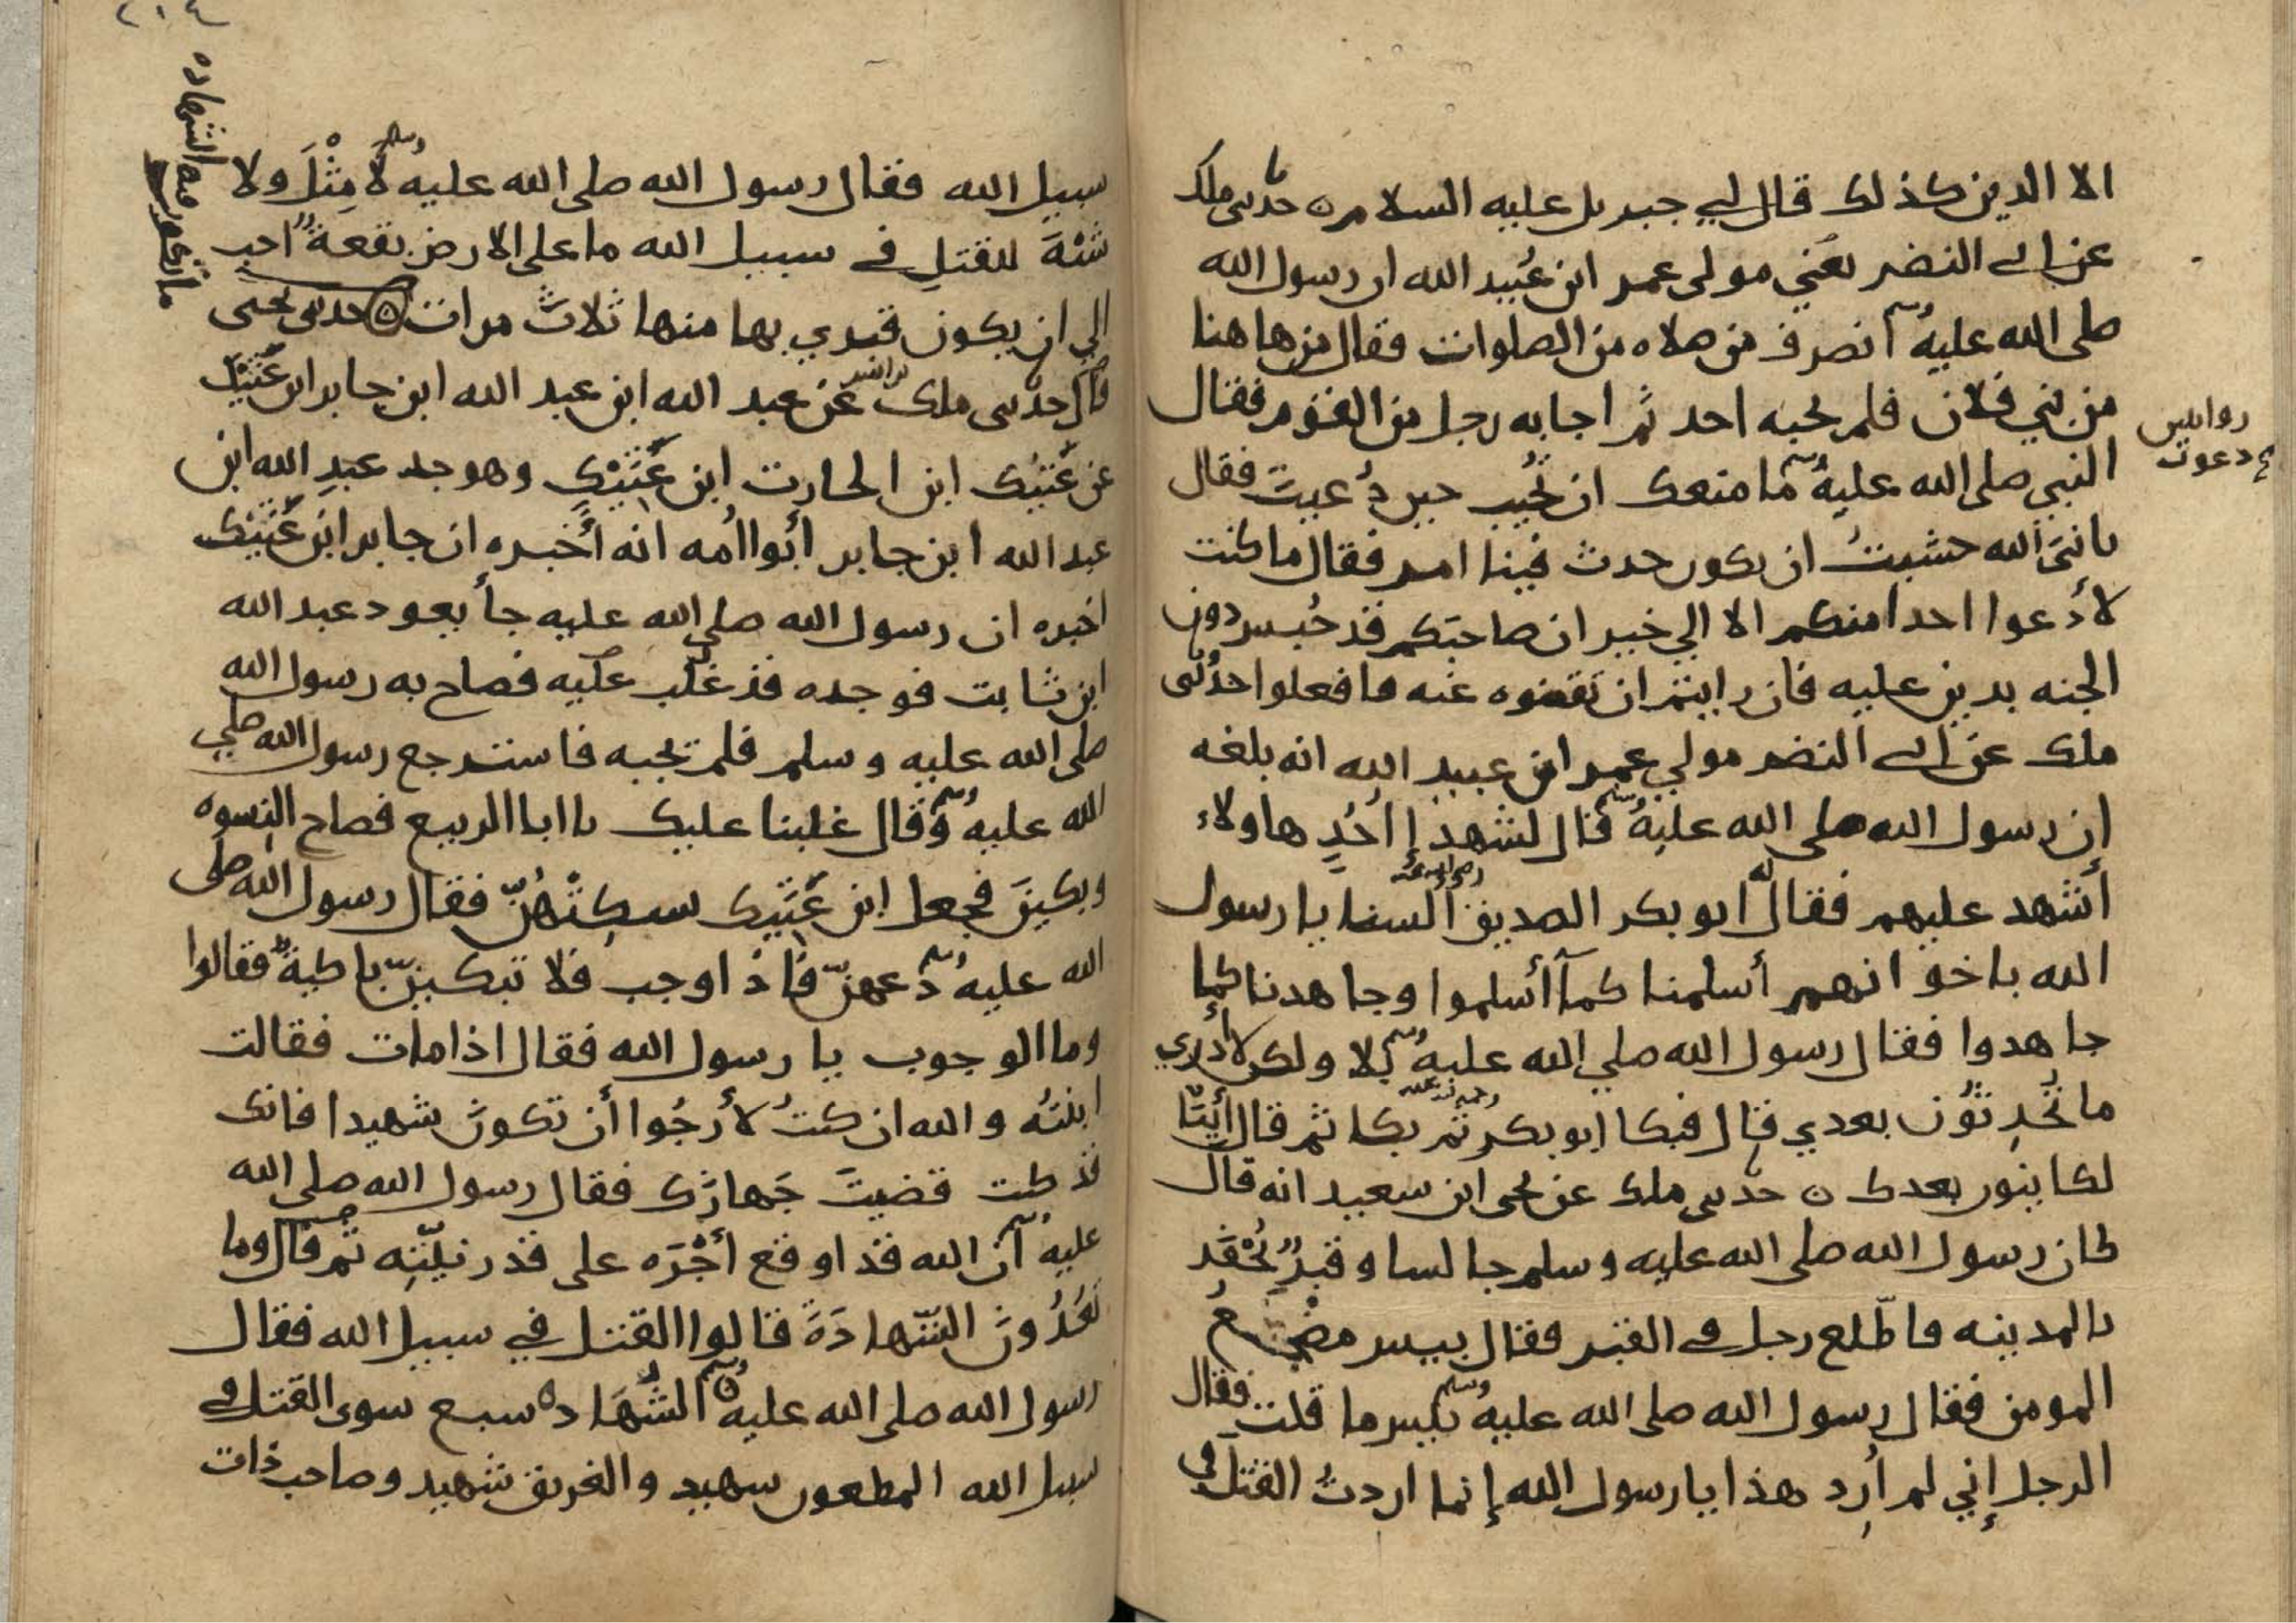 الا الدين كذلك قال لي جبريل عليه السلام ه حدثني ملك
عن ابي النضر يعني مولى عمر ابن عُبيد الله ان رسول الله
صلى الله عليه وسلم انصرف من صلاه من الصلوات فقال من هاهنا
من بني فلان فلم يجبه احد ثم اجابه رجل من القوم فقال
النبي صلى الله عليه وسلم ما منعك ان تُجيب حين دُعيتَ فقال
يا نبيَ الله خشيتُ ان يكون حدث فينا امر فقال ما كنت
لأدعوا احدا منكم الا الي خير ان صاحبَكم قد حُبس دون
الجنه بدين عليه فان رايتم ان تَقضوه عنه فافعلوا حدثني
ملك عن ابي النضر مولي عمر ابن عبيد الله انه بلغه
ان رسول الله صلى الله عليه وسلم قال لشهدإ اُحُدٍ هاولاء
أشهد عليهم فقال له ابو بكر الصديق رضي الله عنه السنا يا رسول
الله باخوانهم أسلمنا كمآ أسلموا وجاهدنا كما
جاهدوا فقال رسول الله صلي الله عليه وسلم بلا ولكن لا أدري
ما تُحدِثُون بعدي قال فبكا ابو بكر ثم بكا ثم قال أيِنّا
لكاينون بعدك ه حدثني ملك عن يحيى ابن سعيد انه قال
كان رسول الله صلى الله عليه وسلم جالسا وقبرٌ يُحْفَر
بالمدينه فاطّلع رجل في القبر فقال بيس مضجعُ
المومن فقال رسول الله صلى الله عليه وسلم بيس ما قلت فقال
الرجل إني لم أُرد هذا يا رسول الله إنما اردتُ القتل في
روايتين
دعوت
سبيل الله فقال رسول الله صلى الله عليه وسلم لَا مِثْلَ ولا
شبْهَ للقتلِ في سبيل الله ما على الارض بقعةٌ احب
الي ان يكون قبري بها منها ثلاثَ مرات ه حدثني يحيى
قال حدثني ملك ابن انس عن عبد الله ابن عبد الله ابن جابر ابن عَتِيْك
عن عَتِيْك ابن الحارث ابن عَتِيْكٍ وهو جد عبدِ الله ابن
عبد الله ابن جابر أبوا أُمه انه أخبره ان جابر ابن عَتِيْك
اخبره ان رسول الله صلي الله عليه جأ يعود عبد الله
ابن ثابت فوجده قد غلب عليه فصاح به رسول الله
صلى الله عليه وسلم فلم يجبه فاسترجع رسول الله صلي
الله عليه وسلم وقال غلبنا عليك يا ابا الربيع فصاح النسوه
وبكينَ فجعل ابن عَتِيْك يسكِتْهُنّ فقال رسول الله صلى
الله عليه وسلم دعهنّ فاذا وجب فلا تبكينّ باكيةٌ فقالوا
وما الوجوب يا رسول الله فقال اذا مات فقالت
ابنتُه والله ان كنتُ لأرجُوا أن تكونَ شهيدا فانك
قد كنت قضيتَ جَهازَك فقال رسول الله صلى الله
عليه وسلم ان الله قد اوقع أجْرَه على قدر نيّتِه ثم قال وما
تَعُدُّونَ الشّهادَةَ قالوا القتل في سبيل الله فقال
رسول الله صلى الله عليه وسلم الشُّهَاده سبع سوى القتل في
سبيل الله المطعون شهيد والغريق شهيد وصاحب ذات